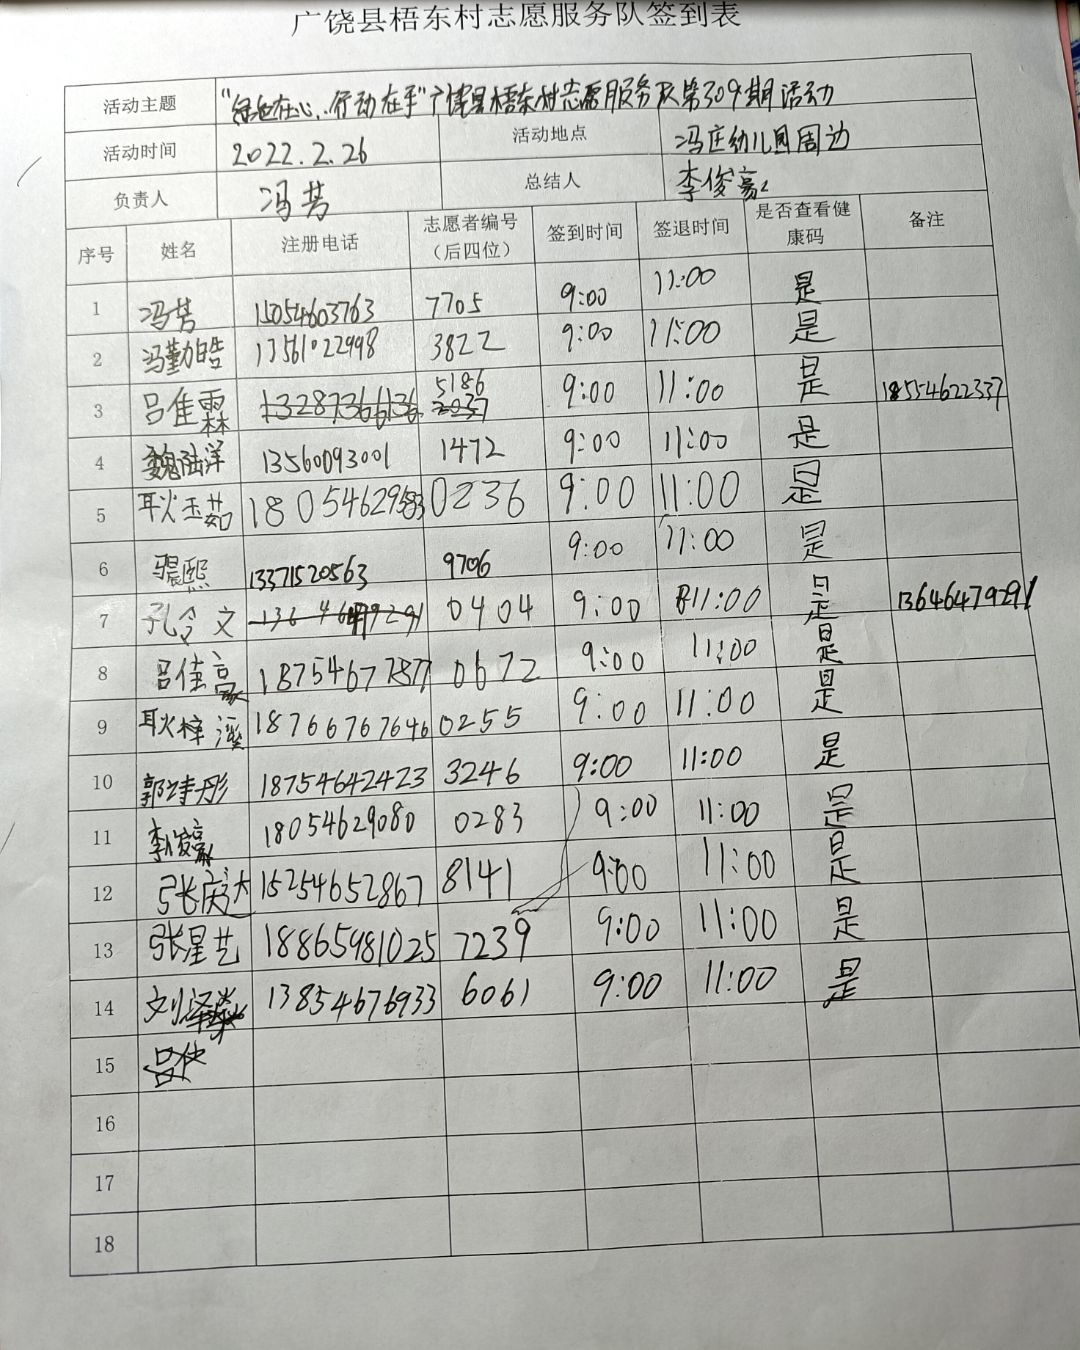 广饶县梧东村志愿服务队签到表
活动主题 "绿色在心,行动在手"广饶县梧东村志愿服务队第309期活动
活动时间 2022.2.26 活动地点 冯庄幼儿园周边
负责人 冯芳 总结人 李俊豪
序号 姓名 注册电话 志愿者编号(后四位) 签到时间 签退时间 是否查看健康码 备注
1 冯芳 15054603763 7705 9:00 11:00 是
2 冯勤皓 13561022998 3822 9:00 11:00 是
3 吕佳霖 13287366136 5186 2037 9:00 11:00 是 18554622337
4 魏陆洋 13560093001 1472 9:00 11:00 是
5 耿玉茹 18054629583 0236 9:00 11:00 是
6 晨熙 13371520563 9706 9:00 11:00 是
7 孔令文 13646479291 0404 9:00 11:00 是 13646479291
8 吕佳豪 18754677877 0672 9:00 11:00 是
9 耿梓 18766767646 0255 9:00 11:00 是
10 郭诗彤 18754642423 3246 9:00 11:00 是
11 李俊豪 18054629080 0283 9:00 11:00 是
12 张庆达 15254652867 8141 9:00 11:00 是
13 张星艺 18865981025 7239 9:00 11:00 是
14 刘泽 13854676933 6061 9:00 11:00 是
15 吕
16
17
18